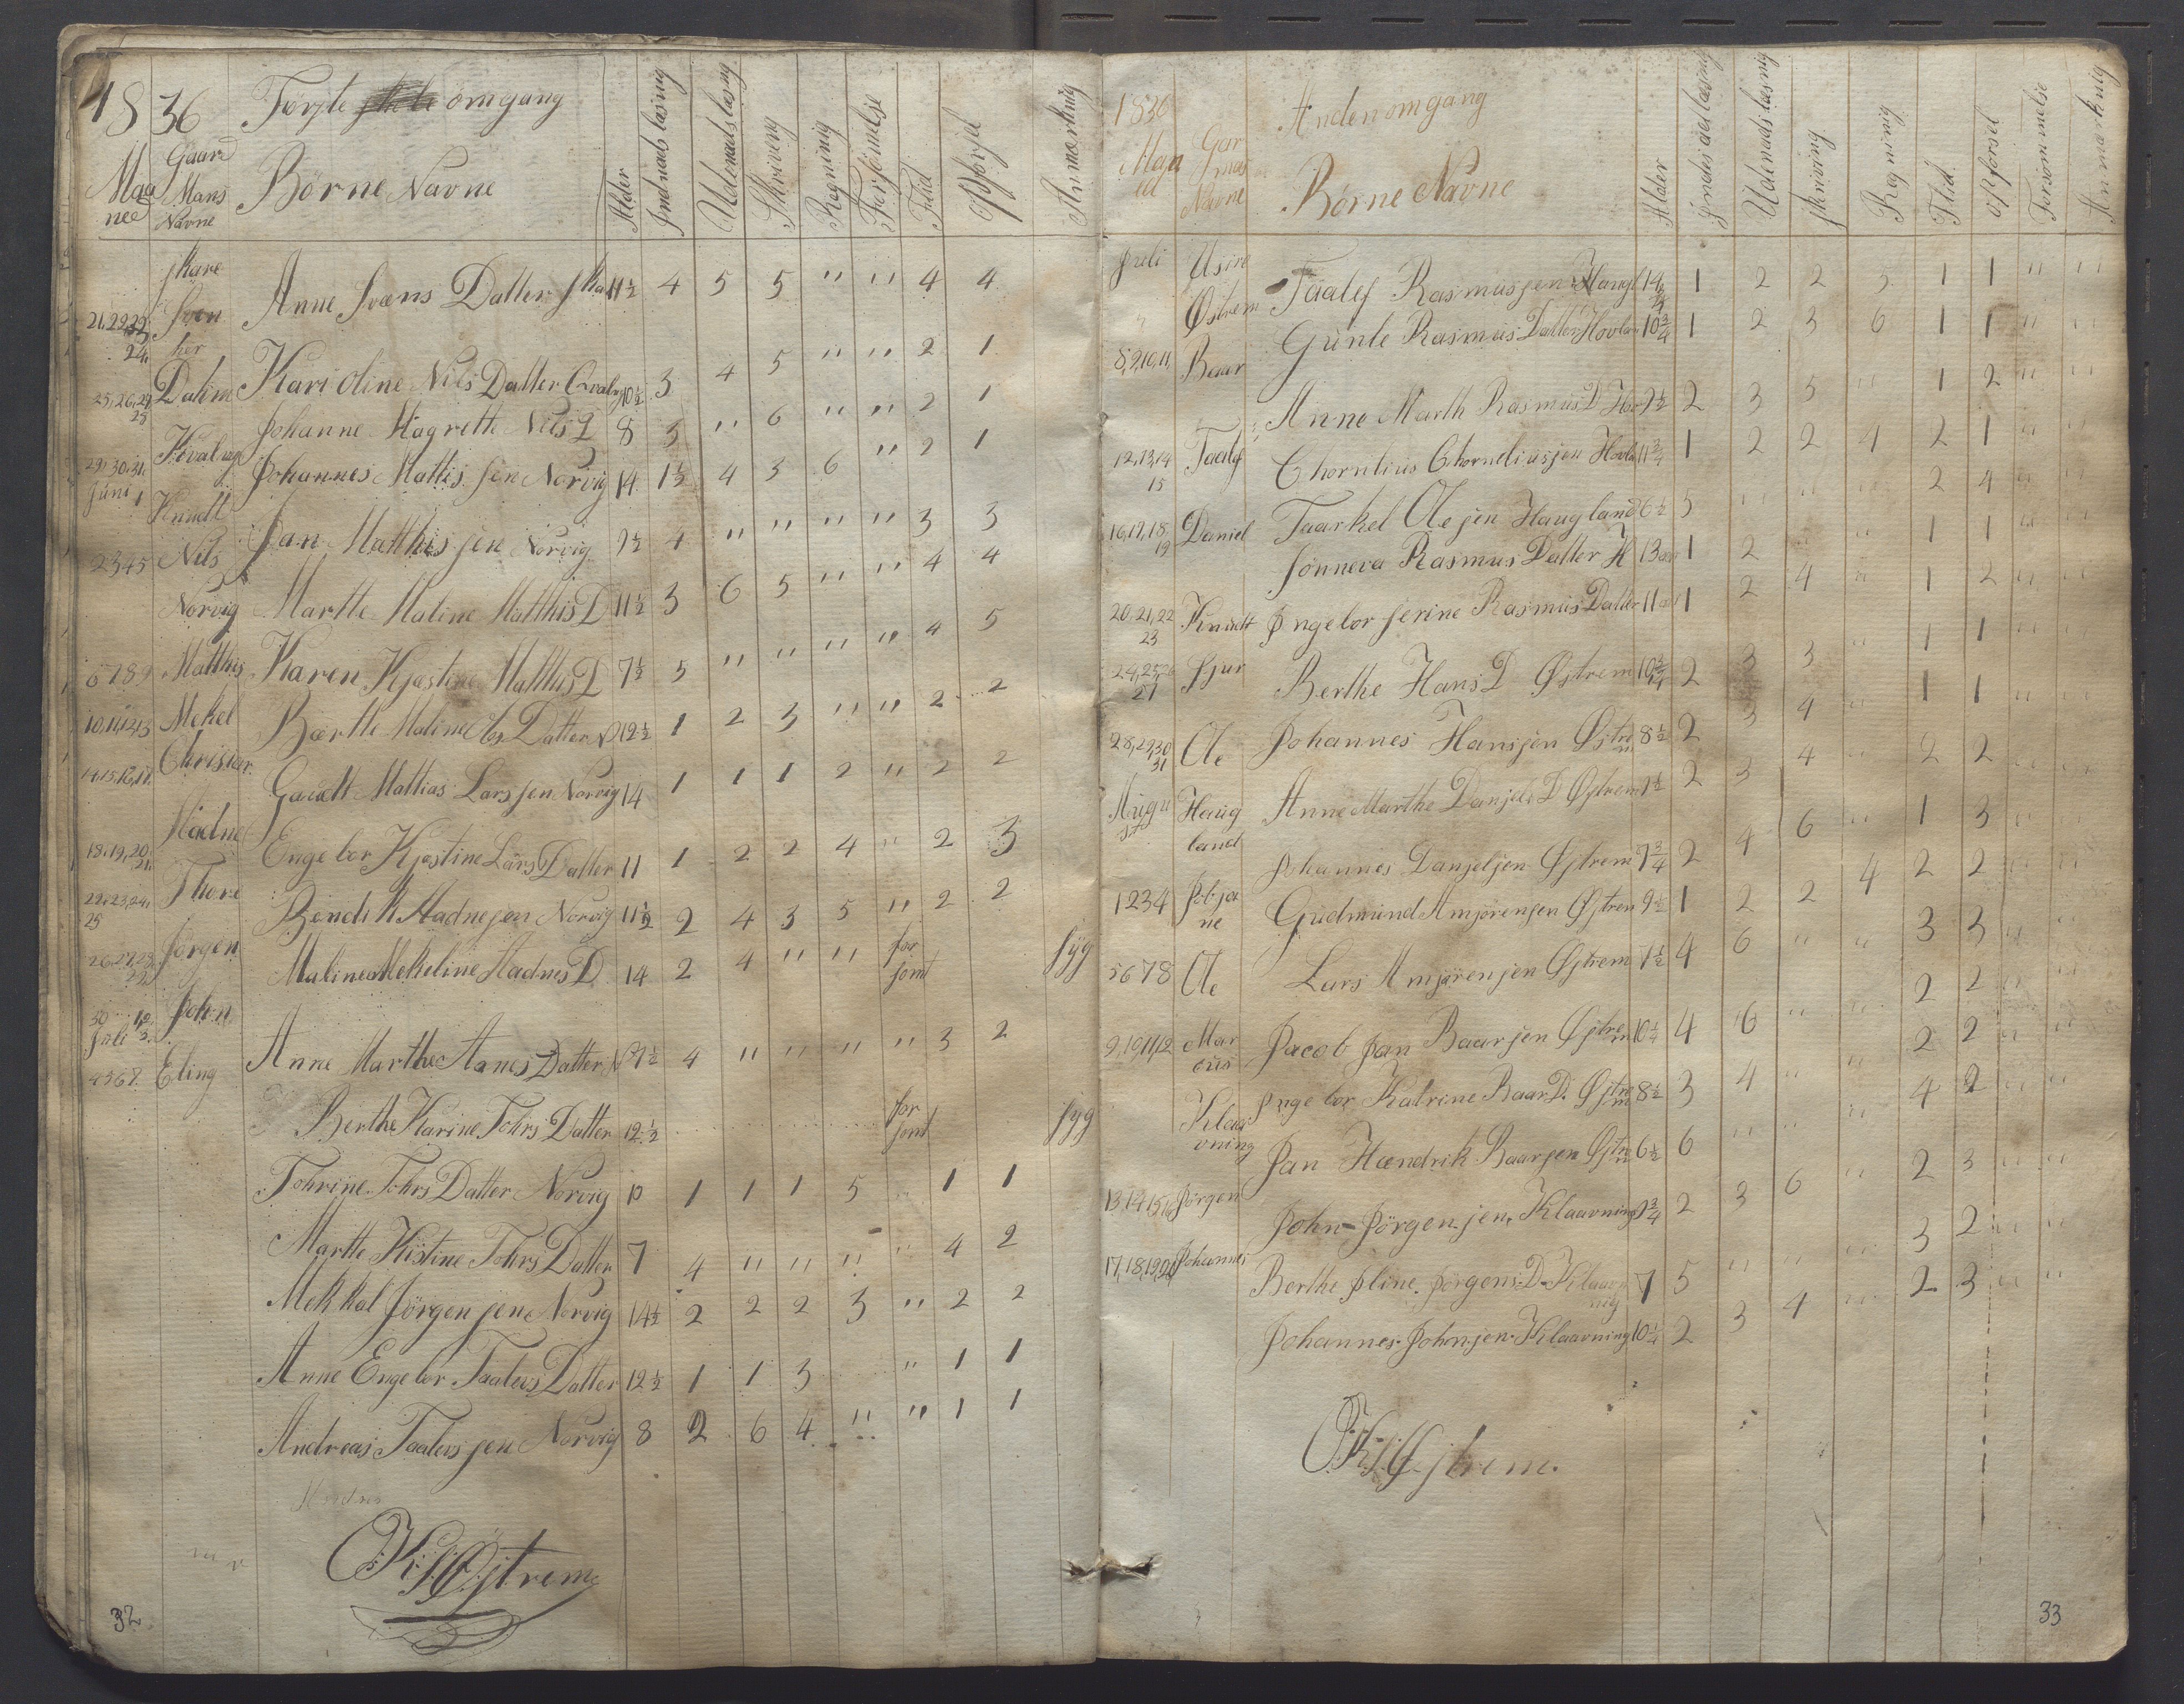 1836 Første omgang
Maaned Gaard Mans Navne Børne Navne Alder Indnads læsnig Udenads læsnig Skriveng Regning Forsømelse Flid Opførsel An mærknig
Skare
21.22.23. 24. Sven Anne Svæns Datter Ska 11½ 4 5 5 " " 4 4
her
Dalim Kari Oline Nils Datter 10½ 3 4 5 " " 2 1
Johanne Magrette Nils D 8 5 " 6 " " 2 1
29.30.31. Juni 1 Johannes Mattis sen Norvig 14 1½ 4 3 6 " 2 1
Knudt
2345 Nils Jan Matthis sen Norvig 9½ 4 " " " " 3 3
Norvig Marthe Maline Matthis D 11½ 3 6 5 " " 4 4
6789 Matthis Karen Kjestine Matthis D 7½ 5 " " " " 4 5
10,11,12,13 Mekel Bærthe Maline Datter N 12½ 1 2 3 " " 2 2
14.15.16.17. Christian Gaudt Mathias Lars sen Norvig 14 1 1 1 2 " 2 2
Aadne
18.19.20. 21. Engebor Kjestine Lars Datter 11 1 2 2 4 " 2 3
22.23.24. 25 Thore Bendik Aadne sen Norvig 11½ 2 4 3 5 " 2 2
26.27.28. 29 Jørgen Maline Mekeline Aadnes D 14 2 4 " " for somt syg
30 1,2. Juli 3. John
4567 Eling Anne Marthe Aanes Datter N 7½ 4 " " " " 3 2
Berthe Karine Tohrs Datter 12½ for somt syg
Tohrine Tohrs Datter Norvig 10 1 1 1 5 " 1 1
Marthe Kistine Tohrs Datter 7 4 " " " " 4 2
Mekkal Jørgen sen Norvig 14½ 2 2 2 3 " 2 2
Anne Engebor Taalevs Datter 12½ 1 1 3 " 1 1
Andreas Taalevs sen Norvig 8 2 6 4 " " 1 1
O.K.S. Østrem
32
1836 Anden omgang
Maaned Gar mans Navne Børne Navne Alder Indenad læsnig Udenads læsnig skrivnig Regning Flid opførsel Forsømmelse An mærknig
Juli Usire
Østrem Taalef Rasmussen Haugl 14 1 2 2 3 1 1 " "
8,9,10,11, Baar Gunle Rasmus Datter Hovlan 10¾ 1 2 3 6 1 1 " "
Anne Marth Rasmus D 7½ 2 3 5 " 1 2 " "
12,13,14 15 Taalef Chornelius Chorneliussen 11¾ 1 2 2 4 2 1 " "
16,17,18, 19 Daniel Taarkel Ole sen Haugland 6½ 5 " " " 2 4 " "
Sønneva Rasmus Datter H 13 1 2 " " 1 1 " "
20,21,22 23 Knudt Ingebor Serine Rasmus Datter 11 1 2 4 " 1 2 " "
24,25,26 27 Sjur Berthe Hans D Østrem 10¾ 2 3 3 " 1 1 " "
28,29,30 31 Ole Johannes Hansen Østrem 8½ 2 3 4 " 1 1 " "
August Haugland Anne Marthe Danjels D Østrem 2 3 4 " 2 2 " "
Johannes Danjelsen Østrem 7¾ 2 4 6 " 1 3 " "
1234 Gudmund Amjørensen Østrem 9½ 1 2 2 4 2 2 " "
5678 Ole Lars Amjørensen Østrem 7½ 4 6 " " 3 3 " "
9,10,11,12 Marcus Jacob Jan Baarsen Østrem 10¼ 4 6 " " 2 2 " "
Ingebor Katrine Baar D. Østrem 8½ 3 4 " " 2 2 " "
Klaavning Jan Hendrik Baarsen Østrem 6½ 6 " " " 4 2 " "
13,14,15,16 Jørgen John Jørgensen Klaavning 9¾ 2 3 6 " 2 3 " "
17,18,19,20 Johannes Berthe Iline Jørgens D. Klaavnig 7 5 " " " 3 2 " "
Johannes Johnsen Klaavning 10¼ 2 3 4 " 2 3 " "
O.K.S. Østrem.
33